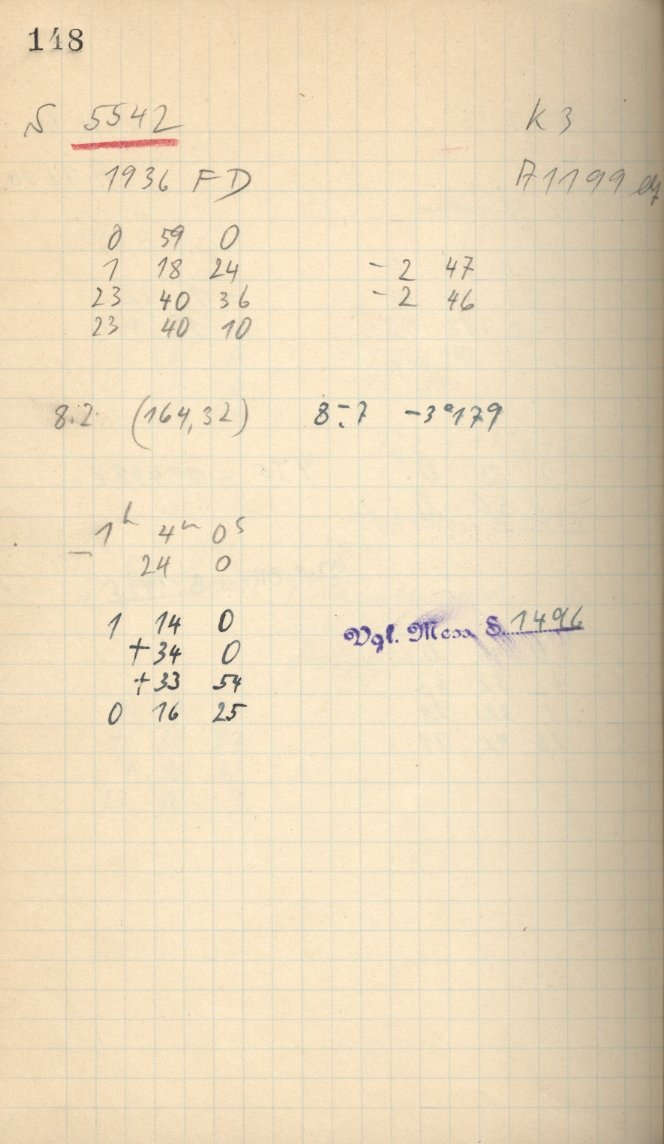 148
S 5542 K 3
1936 FD A 1199
0 59 0
1 18 24 - 2 47
23 40 36 - 2 46
23 40 10
8.2 (164,32) 8.7 -3°179
1h 4m 0s
- 24 0
1 14 0
Vgl. Mess S. 1496
+34 0
+33 54
0 16 25